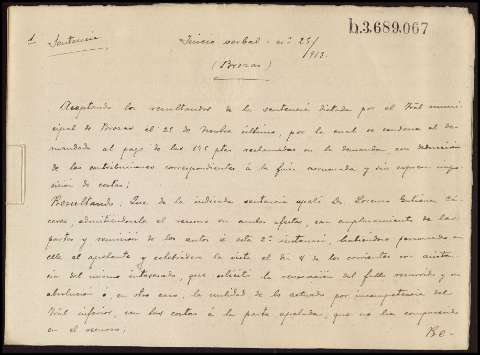 h.3.689.067
Sentencia
Juicio verbal - nº 25/
913
(Brozas)
Aceptando los resultandos de la sentencia dictada por el Tñal muni-
cipal de Brozas el 25 de último, por la cual se condena al de-
mandado al pago de las 175 ptas reclamadas en la demanda con deducción
de las contribuciones correspondientes á la finca y sin expresa impo-
sición de costas;
Resultando: Que de la indicada sentencia apeló Dn Lorenzo Cá-
ceres, admitiéndosele el recurso en ambos efectos, con emplazamiento de las
partes y remisión de los autos á esta 2ª instancia, habiéndose personado en
ella el apelante y celebrádose la vista el día 4 de los corrientes con asisten-
cia del mismo interesado, que solicitó la revocación del fallo recurrido y su
absolución ó, en otro caso, la nulidad de lo actuado por incompetencia del
Tñal inferior, con las costas á la parte apelada, que no ha comparecido
en el recurso;
Re-